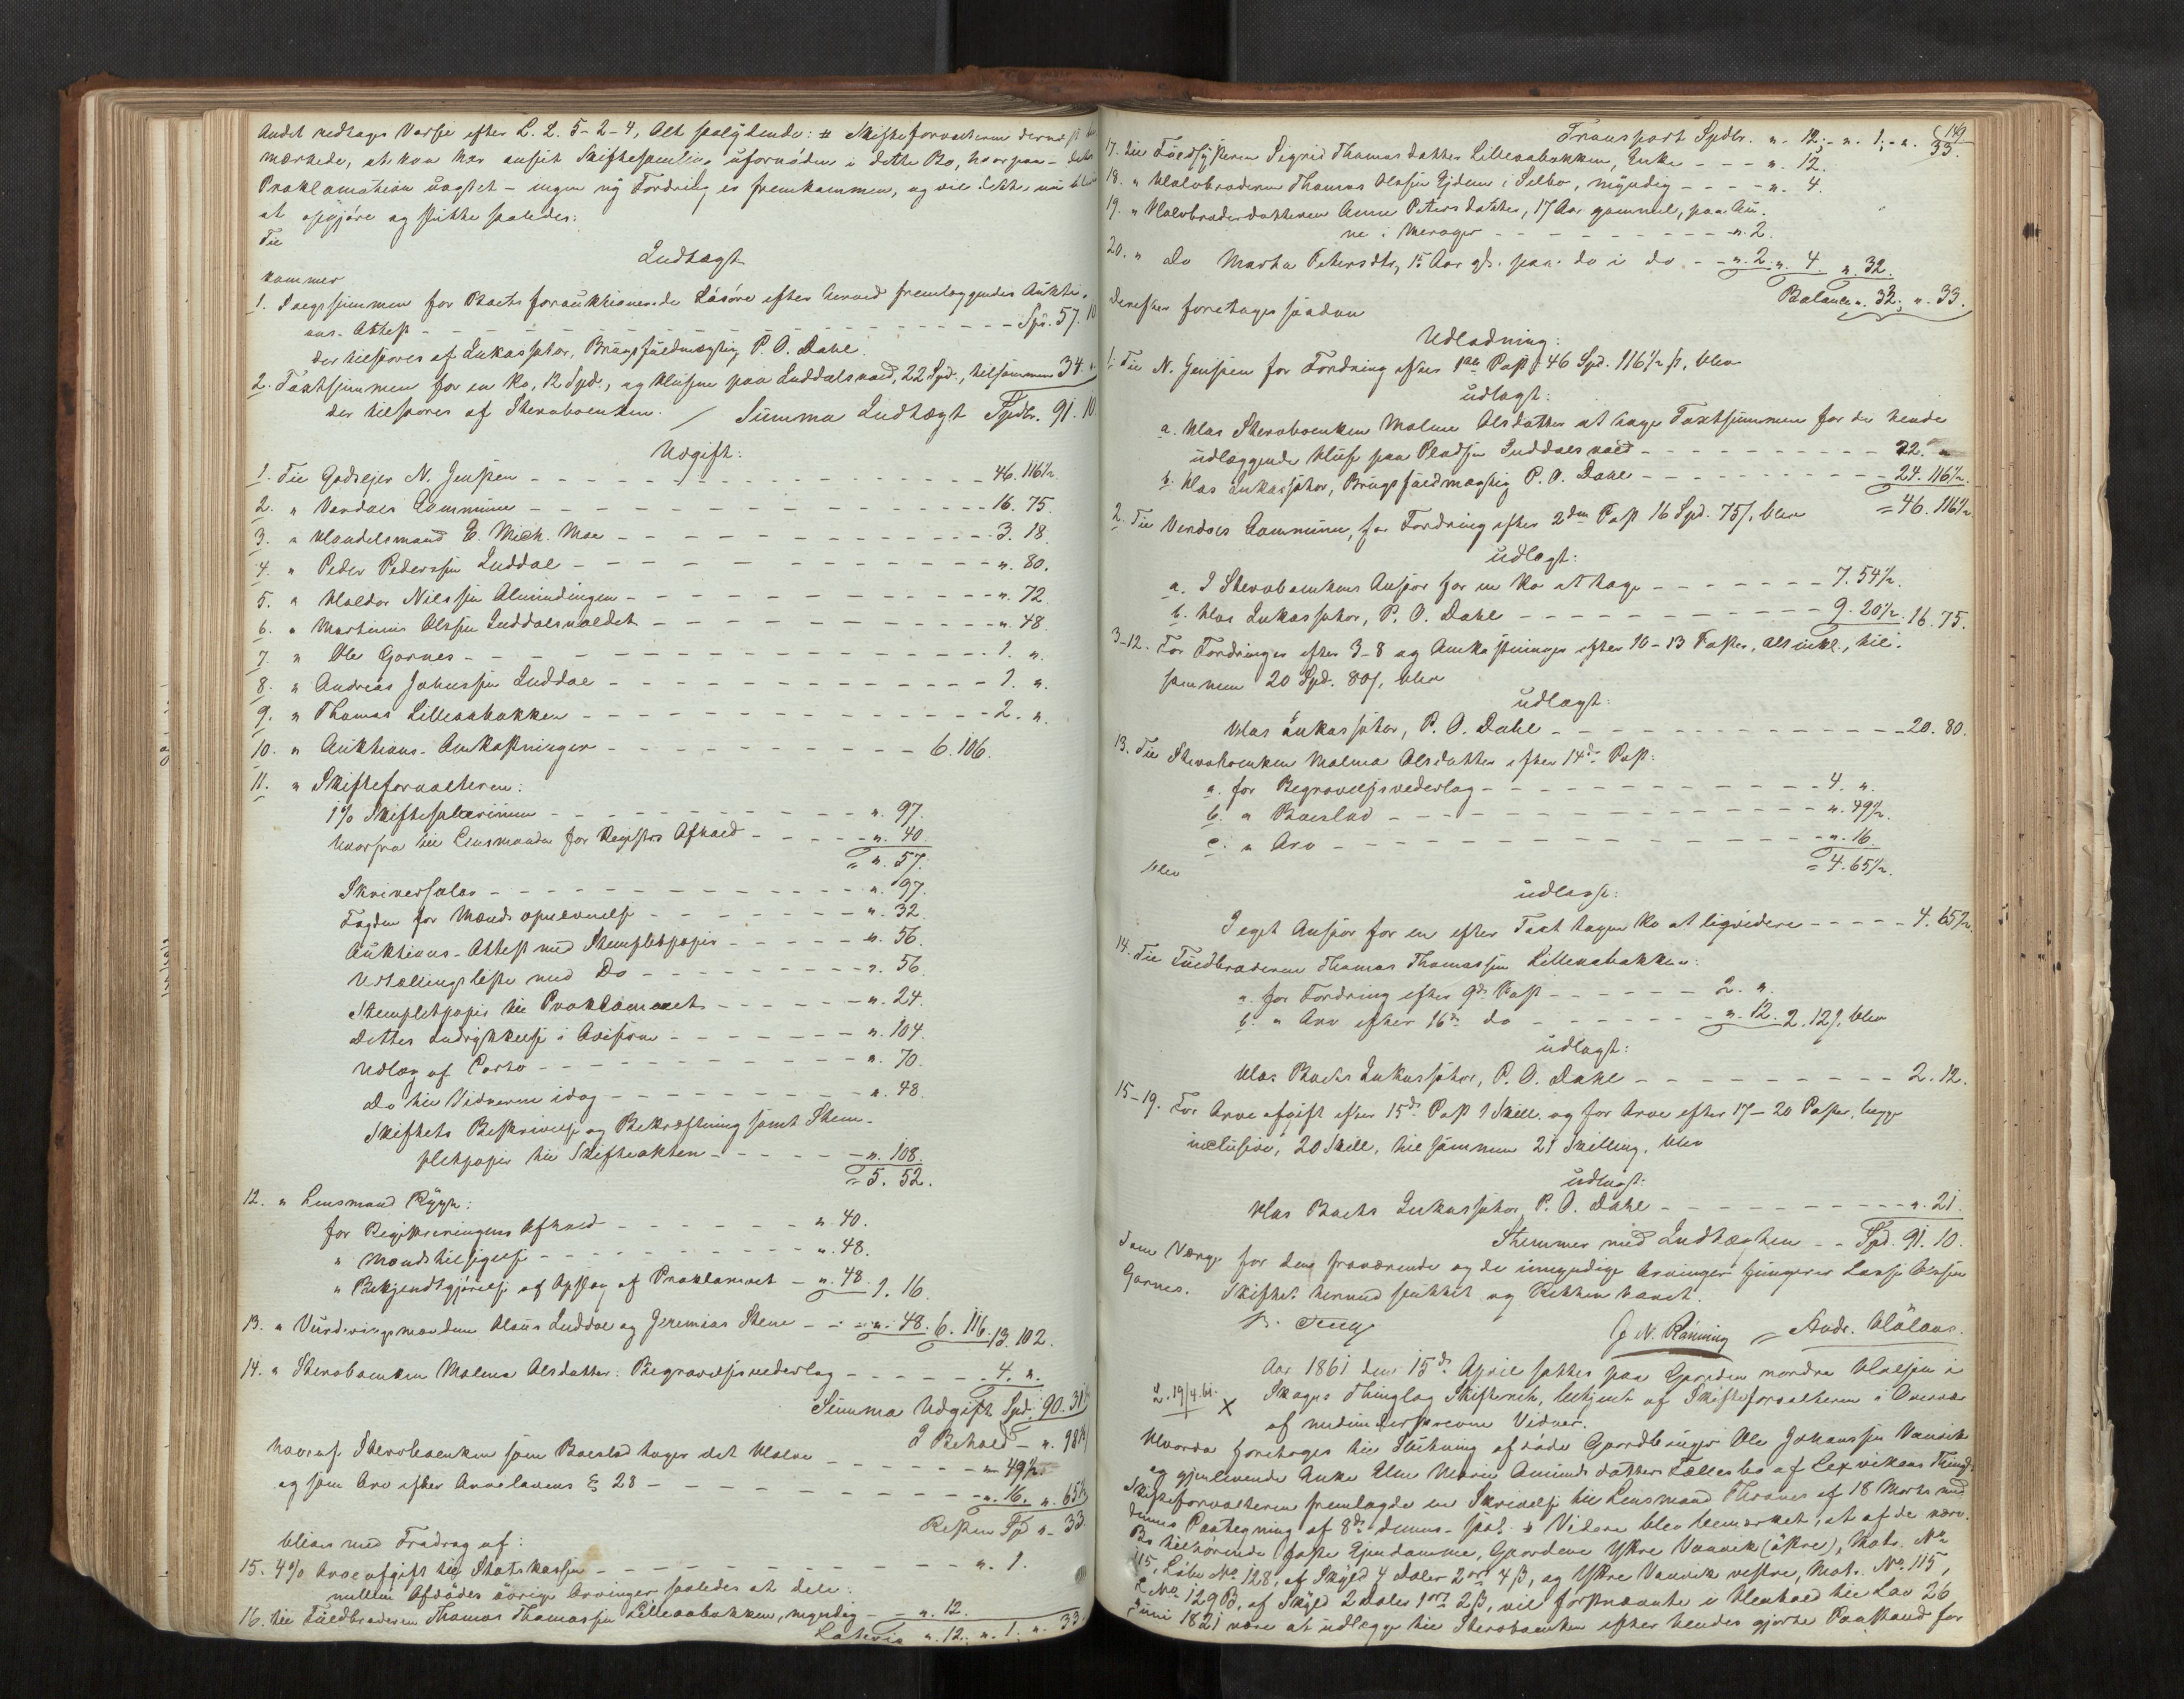 Andet vedtages Værge efter L. L. 5-2-4, Alt saalydende: # Skifteforvalteren dernæst be-
mærkede, at han har anseet Skiftesamling ufornöden i dette Bo, hvorpaa - dets
Proklamation uagtet - ingen ny Fordring er fremkommen, og vil dette nu blive
at opgjöre og slutte saaledes:
Til
Indtægt
kommer
1. Salgssummen for Boets forauktionerede Lösöre efter herved fremlæggendes Aukti-
ons-Attest - - - Spd. 57. 10
der tilsvares af Inkassator, Brugsfuldmægtig P. O. Dahl.
2. Taxtsummen for en Ko, 12 Spd., og Husene paa Inddalsvald, 22 Spd., tilsammen 34. "
der tilsvares af Stervboenken. / Summa Indtægt Spdlr. 91. 10
Udgift:
1. Til Godsejer N. Jenssen - - - 46. 116½
2. " Verdals Commune - - - 16. 75.
3. " Handelsmand E. Mich. Moe - - - 3. 18.
4. " Peder Pederssen Inddal - - - ". 80.
5. " Haldor Nilssen Almindingen - - - ". 72
6. " Martinus Olssen Inddalsvaldet - - - ". 48
7. " Ole Garnes - - - 1. ".
8. " Andreas Johnssen Inddal - - - 1. ".
9. " Thomas Lilleaabakken - - - 2. ".
10. " Auktions-Omkostninger - - - 6. 106.
11. " Skifteforvalteren:
1% Skiftesalærium - - - ". 97.
hvorfra til Lensmanden for Registrs Afhold - - - ". 40
= ". 57.
Skriversalær - - - ". 97.
Fogden for Mænds opnævnelse - - - ". 32
Auktions-Attest med Stempletpapir - - - ". 56.
Udtællingsliste med Do - - - ". 56
Stempletpapir til Proklamaet - - - ". 24.
Dettes Indrykkelse i Aviserne - - - ". 104
Udlæg af Porto - - - ". 70.
Do til Vidnerne idag - - - ". 48.
Skiftets Beskrivelse og Bekræftning samt Stem-
pletpapir til Skifteakten - - - ". 108.
= 5. 52.
12. " Lensmand Rygh:
for Registreringens Afhold - - - ". 40.
" Mandstilsigelse - - - ". 48.
" Bekjendtgjörelse af Opslag af Proklamaet - ". 48. 1. 16.
13. " Vurderingsmændene Claus Inddal og Jeremias Stene - - ". 48. 6. 116. 13. 102.
14. " Stervboenken Malena Olsdatter: Begravelsesvederlag - - - 4. ".
Summa Udgift Spd. 90. 31½
I Behold - ". 98½
hvoraf Stervboenken som Boeslod tager det Halve - - - ". 49½
og som Arv efter Arvelovens § 28 - - - ". 16. ". 65½
Resten Sp ". 33
bliver med Fradrag af:
15. 4% Arveafgift til Statskassen - - - ". 1.
mellem Afdödes övrige Arvinger saaledes at dele:
16. til Fuldbroderen Thomas Thomassen Lilleaabakken, myndig - - ". 12.
Lateris ". 12; ". 1; ". 33.
(149
Transport Spdlr. ". 12; - ". 1; - ". 33.
17. til Fuldsösteren Sigrid Thomasdatter Lilleaabakken, Enke - - - ". 12.
18. " Halvbroderen Thomas Olssen Gjdem i Selbo, myndig - - - ". 4.
19. " Halvbroderdatteren Anne Petersdatter, 17 Aar gammel, paa Au-
ne i Merager - - - ". 2.
20. " Do Martha Petersdtr, 15 Aar gl. paa do i do - - ". 2. ". 4. ". 32.
Balance ". 32; ". 33.
Derefter foretages saadan
Udlodning:
1. Til N. Jenssen for Fordring efter 1ste Post 46 Spd. 116½ s, blev
udlagt:
a. Hos Stervboenken Malena Olsdatter at tage Taxtsummen for de hende
udlæggende Huse paa Pladsen Inddalsvald - - - 22. "
b. Hos Inkassator, Brugsfuldmægtig P. O. Dahl - - - 24. 116½.
= 46. 116½
2. Til Verdals Commune, for Fordring efter 2den Post 16 Spd. 75 s, blev
udlagt:
a. I Stervboenkens Ansvar for en Ko at tage - - - 7. 54½.
b. Hos Inkassator, P. O. Dahl - - - 9. 20½. 16. 75.
3-12. For Fordringer efter 3-8 og Omkostninger efter 10-13 Poster, alt inkl., til-
sammen 20 Spd. 80 s, blev
udlagt:
Hos Inkassator, P. O. Dahl - - - 20. 80.
13. Til Stervboenken Malena Olsdatter efter 14de Post:
a. for Begravelsesvederlag - - - 4. ".
b. " Boeslod - - - ". 49½.
c. " Arv - - - ". 16
= 4. 65½.
blev
udlagt:
I eget Ansvar for en efter Taxt tagen Ko at liqvidere - - - 4. 65½.
14. Til Fuldbroderen Thomas Thomassen Lilleaabakken:
a. for Fordring efter 9de Post - - - 2. ".
b. " Arv efter 16de do - - - ". 12. 2. 12 s, blev
udlagt:
Hos Boets Inkassator, P. O. Dahl - - - 2. 12.
15-19. For Arveafgift efter 15de Post 1 Skill. og for Arve efter 17-20 Poster, begge
inclusive, 20 Skill, tilsammen 21 Skilling, blev
udlagt:
Hos Boets Inkassator, P. O. Dahl - - - ". 21.
Stemmer med Indtægten - - Spd. 91. 10.
Som Værge for den fraværende og de umyndige Arvinger fungerer Lasse Olssen
Garnes. Skiftet hermed sluttet og Retten hævet.
J. N. Ränning Andr. Hälaas.
Aar 1861 den 15de April sattes paa Gaarden nordre Halsen i
L. 19/4. 61. X Skogns Thinglag Skifteret, betjent af Skifteforvalteren i Overvær
af nedenunderskrevne Vidner.
Hvorda foretoges til Slutning afdöde Gaardbruger Ole Johanssen Vanvik
og gjenlevende Enke Elen Marie Amundsdatters Fællesbo af Lexvikens Thingl.
Skifteforvalteren fremlagde en Skrivelse til Lensmand Thranes af 18 Marts med
dennes Paategning af 8de dennes - saal. # Videre blev bemærket, at af de nærv.
Bo tilhörende faste Ejendomme, Gaardene Ytre Vanvik (östre), Matr. No
115, Löbe No 128, af Skyld 4 Daler 2 ort 4 β, og Ytre Vanvik vestre, Matr. No 115,
L. No 129 B, af Skyld 2 Daler 1 ort 2 β, vil förstnævnte i Henhold til Lov 26
Juni 1821 være at udlægge til Stervboenken efter hendes gjorte Paastand for